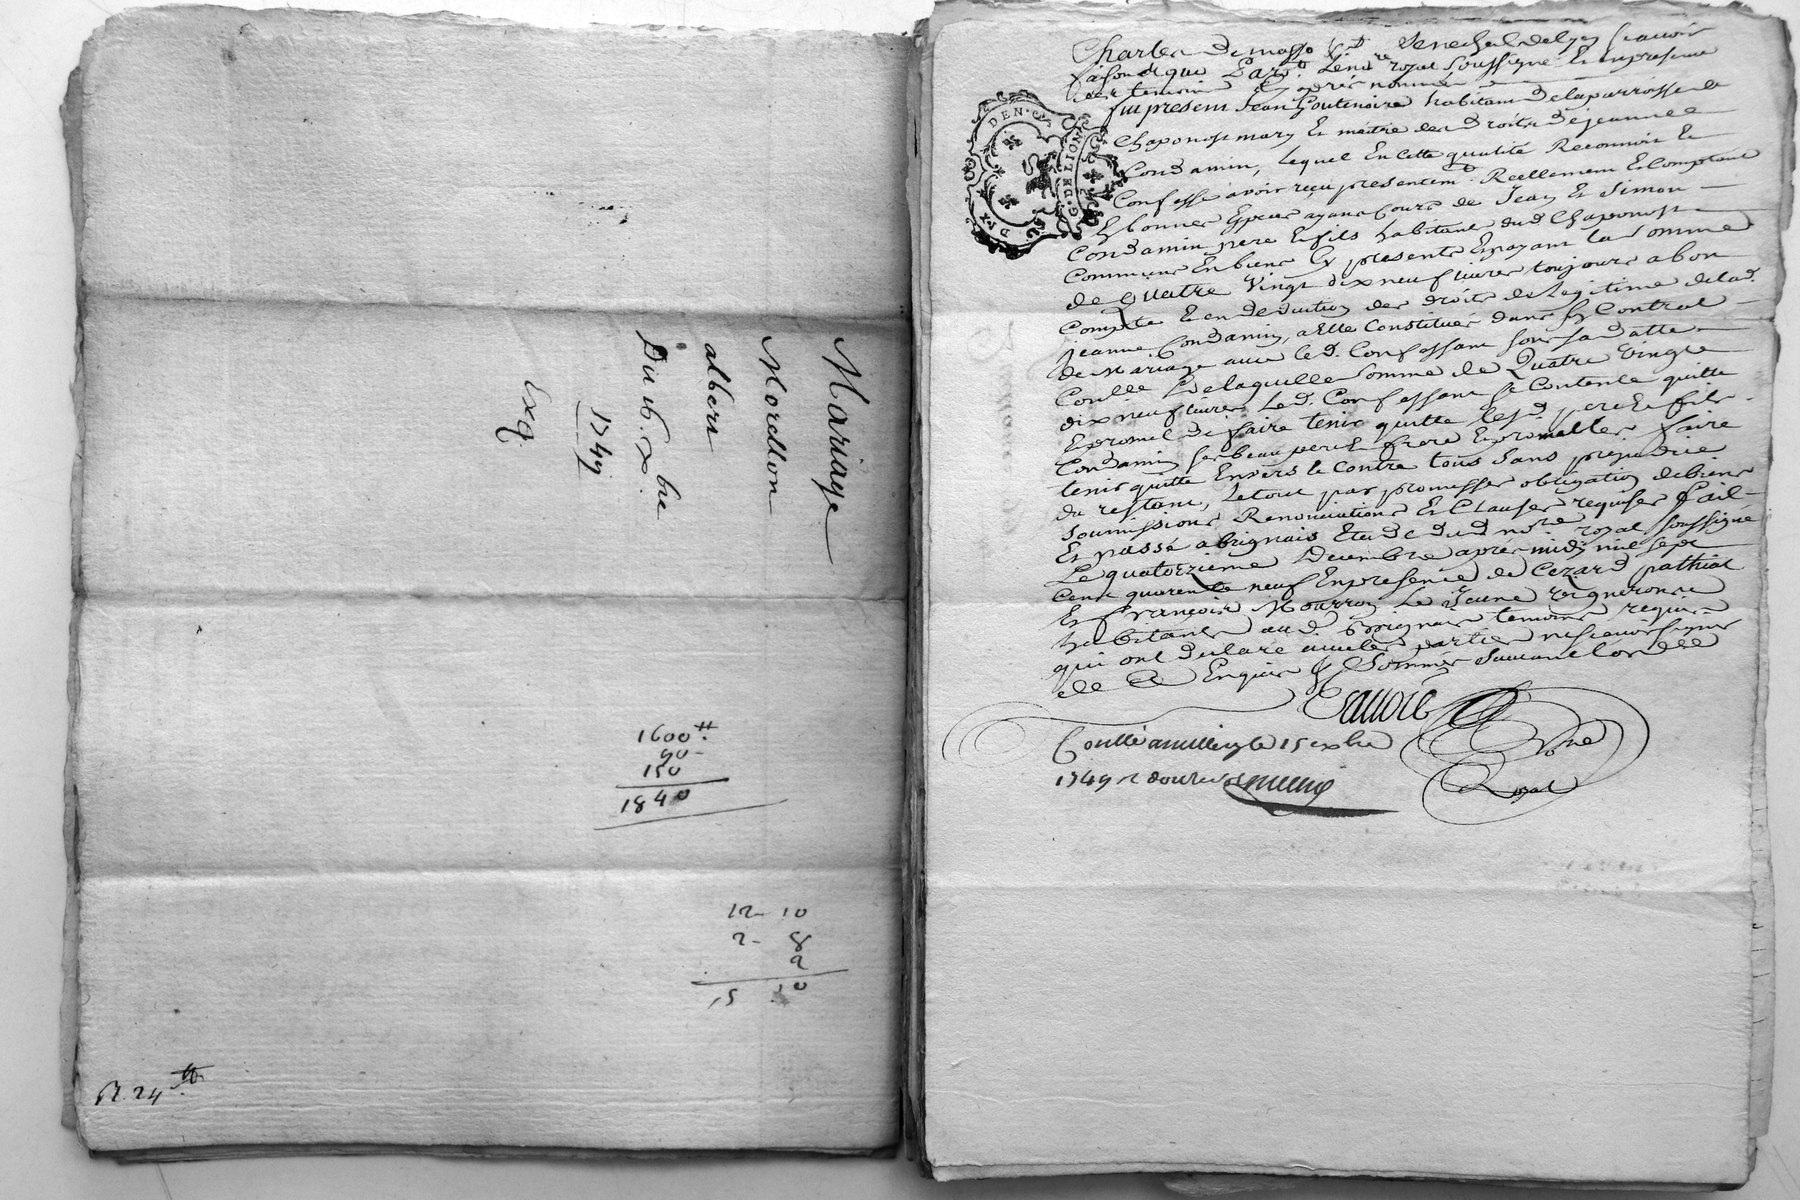 Mariage
Morellon
albert
Du 16. xbre
1749
Exq
1600tt
90-
150
1840
12- 10
2- 8
2
15 10
R. 24tt
DEN.
G. DE LION
Charles De masso Senechal de Lyon scavoir
faisons que Pard. Le no.re royal soussigné Et en presence
des temoins cy apres nommés
fut present Jean Goutenoire habitant de la parroisse de
Chaponost mary Et maitre des droits de jeanne
Condamin, lequel En cette qualité Reconnoit Et
Confesse avoir reçu presentem.t Reellement Et Comptant
Et bonnes Especes ayant Cours de Jean Et Simon
Condamin pere Et fils habitants dud Chaponost
Communs En biens Cy presents Et payant la Somme
de Quatre Vingt dix neuf livres toujours a bon
Compte Et en deduction des droits de Legitime de lad.
jeanne Condamin, a Elle Constitués dans son Contrat
de Mariage avec led. Confessant sous sa datte
Conllé De laquelle Somme de Quatre Vingt
dix neuf livres Led. Confessant se Contente quitte
Et promet de faire tenir quitte lesd pere Et fils
Condamin ses beau pere Et frere Et promettes faire
tenir quitte Envers Et Contre tous Sans prejudice
du restant, Le tout par promesses obligation de biens
Soumissions Renonciations Et Clauses requises fait
Et passé a brignais Etude dud no.re royal soussigné
Le quatorzieme Decembre apres midy mil sept
Cent quarente neuf En presence de Cezard pathiot
Et françois Mourron Le Jeune vignerons
habitants aud. Brignais temoins requis
qui ont declaré avec les parties ne scavoir signer
de ce Enquis & Sommés suivant l'ord.ce
no.re
Royal
Conllé a millery le 15 xbre
1749 r douze sols